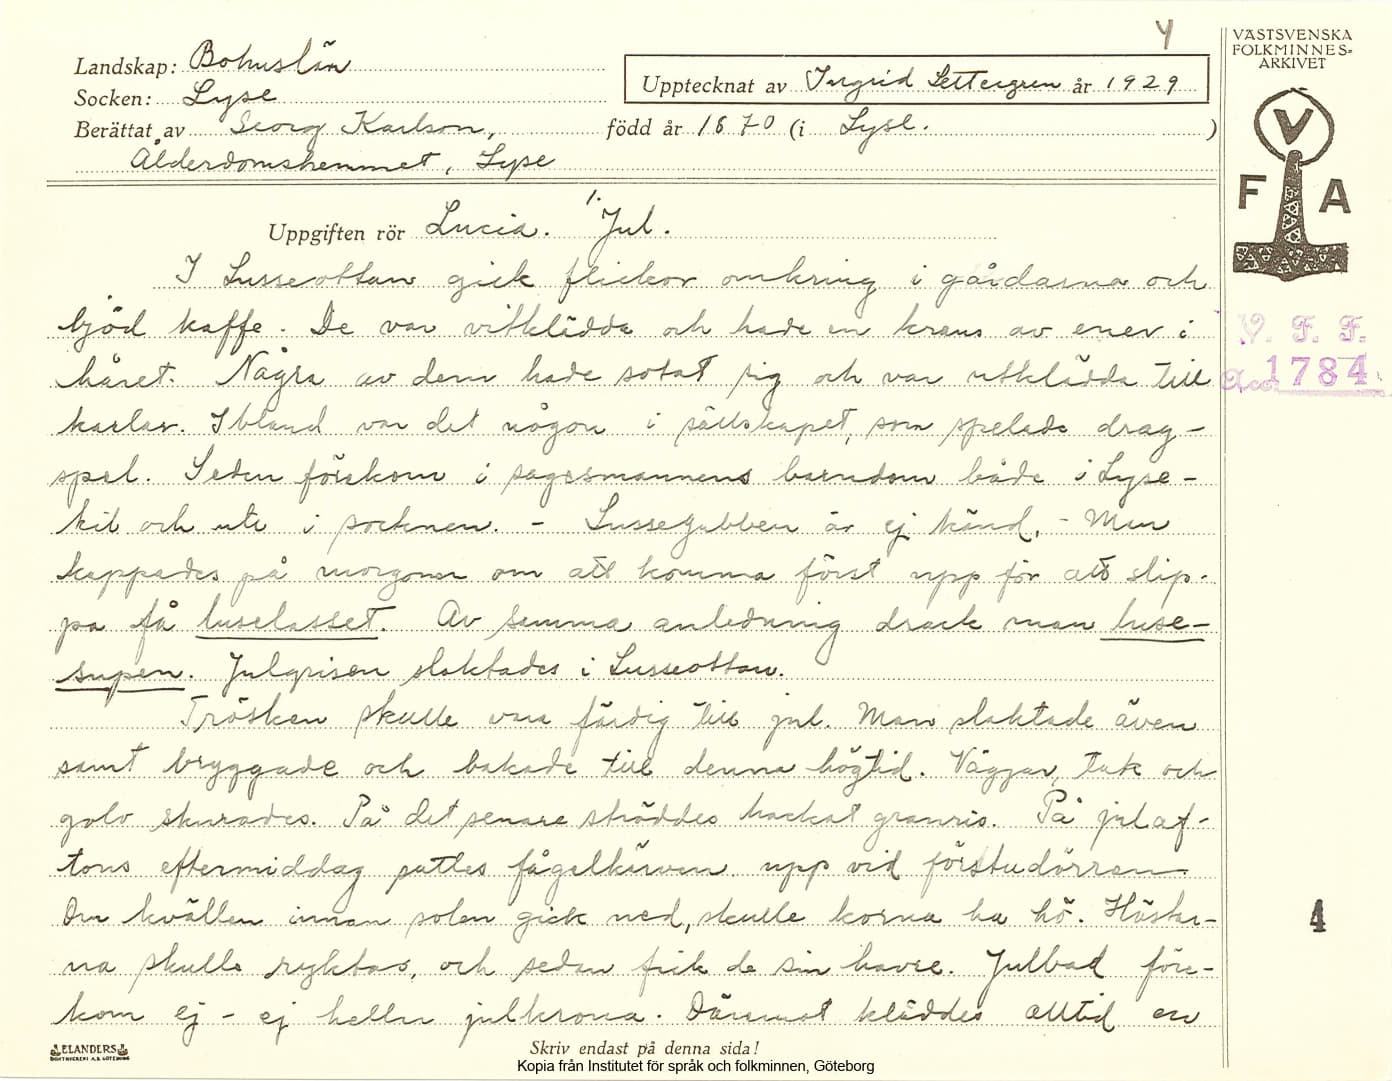 4
VÄSTSVENSKA
FOLKMINNES-
ARKIVET
Landskap: Bohuslän
Upptecknat av Ingrid Settergren år 1929
Socken: Lyse
Berättat av Georg Karlson, född år 1870 (i Lyse. )
Ålderdomshemmet, Lyse
V
F A
1.
Uppgiften rör Lucia. Jul.
I Lusseottan gick flickor omkring i gårdarna och
bjöd kaffe. De var vitklädda och hade en krans av ener i
håret. Några av dem hade sotat sig och var utklädda till
karlar. Ibland var det någon i sällskapet, som spelade drag-
spel. Seden förekom i sagesmannens barndom både i Lyse-
kil och ute i socknen. - Lussegubben är ej känd. - Man
kappades på morgonen om att komma först upp för att slip-
pa få luselasset. Av samma anledning drack man luse-
supen. Julgrisen slaktades i Lusseottan.
Trösken skulle vara färdig till jul. Man slaktade även
samt bryggade och bakade till denna högtid. Väggar, tak och
golv skurades. På det senare ströddes hackat granris. På julaf-
tons eftermiddag sattes fågelkärven upp vid förstudörren
Om kvällen innan solen gick ned, skulle korna ha hö. Hästar-
na skulle ryktas, och sedan fick de sin havre. Julbad före-
kom ej - ej heller julkrona. Däremot kläddes alltid en
V. F. F.
Acc. 1784
4
ELANDERS
BOKTRYCKERI A.B. GÖTEBORG
Skriv endast på denna sida!
Kopia från Institutet för språk och folkminnen, Göteborg